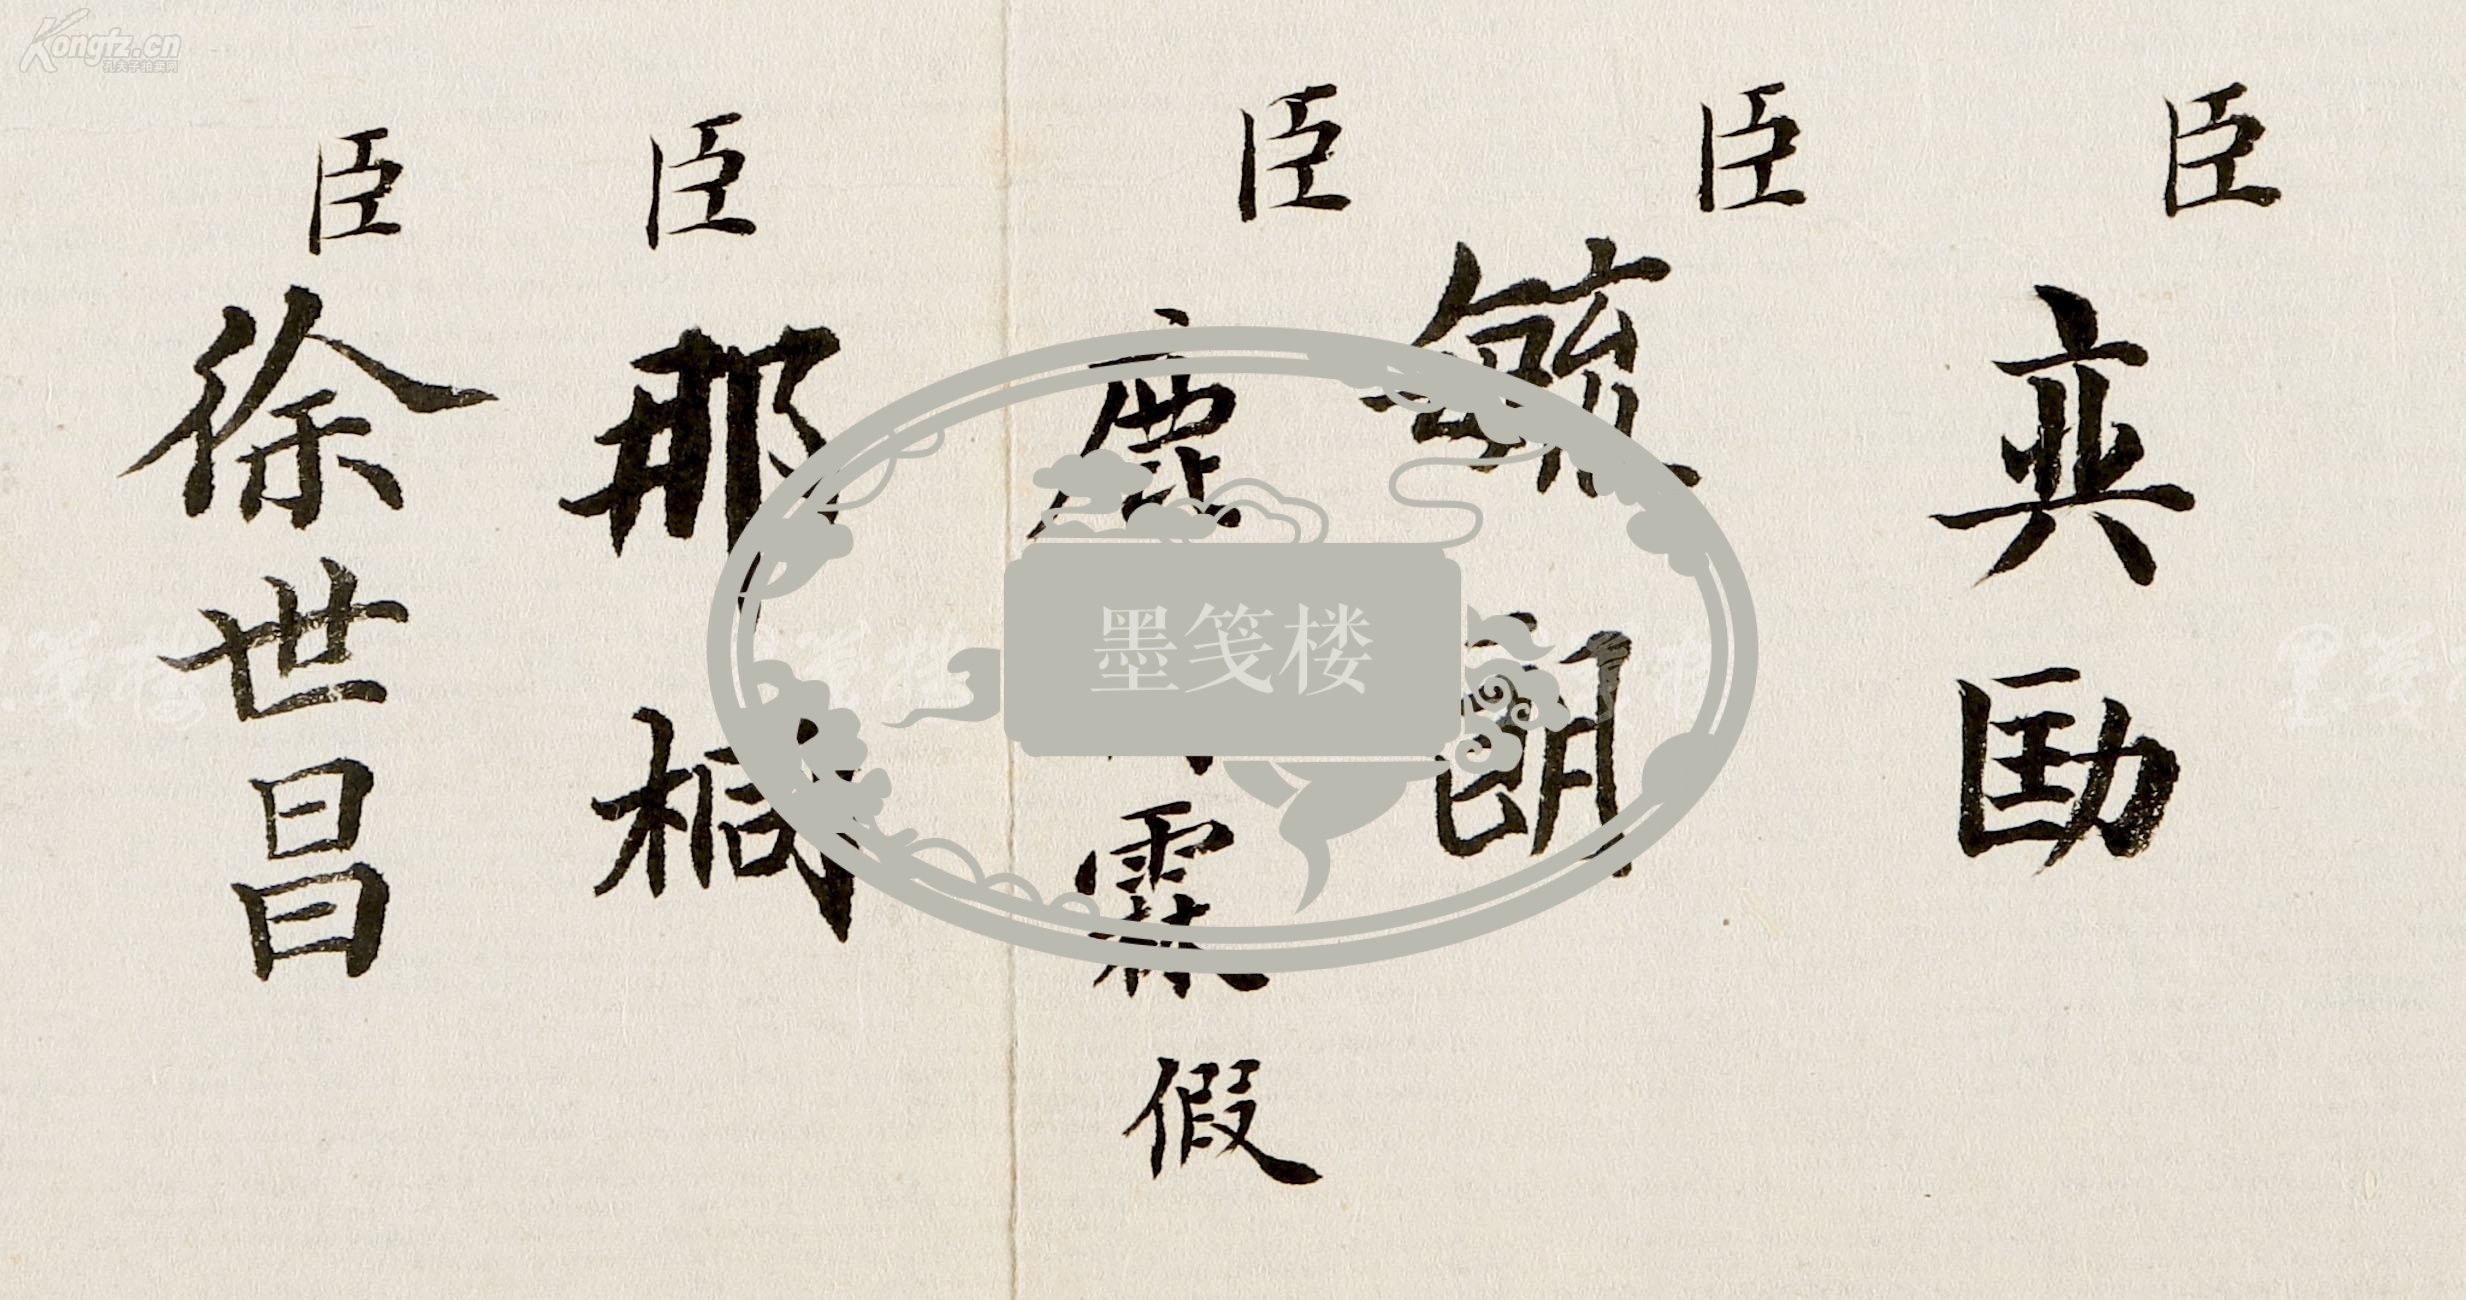 臣奕劻
臣毓朗
臣鹿霖假
臣那桐
臣徐世昌
墨笺楼
Kongfz.cn
孔夫子拍卖网